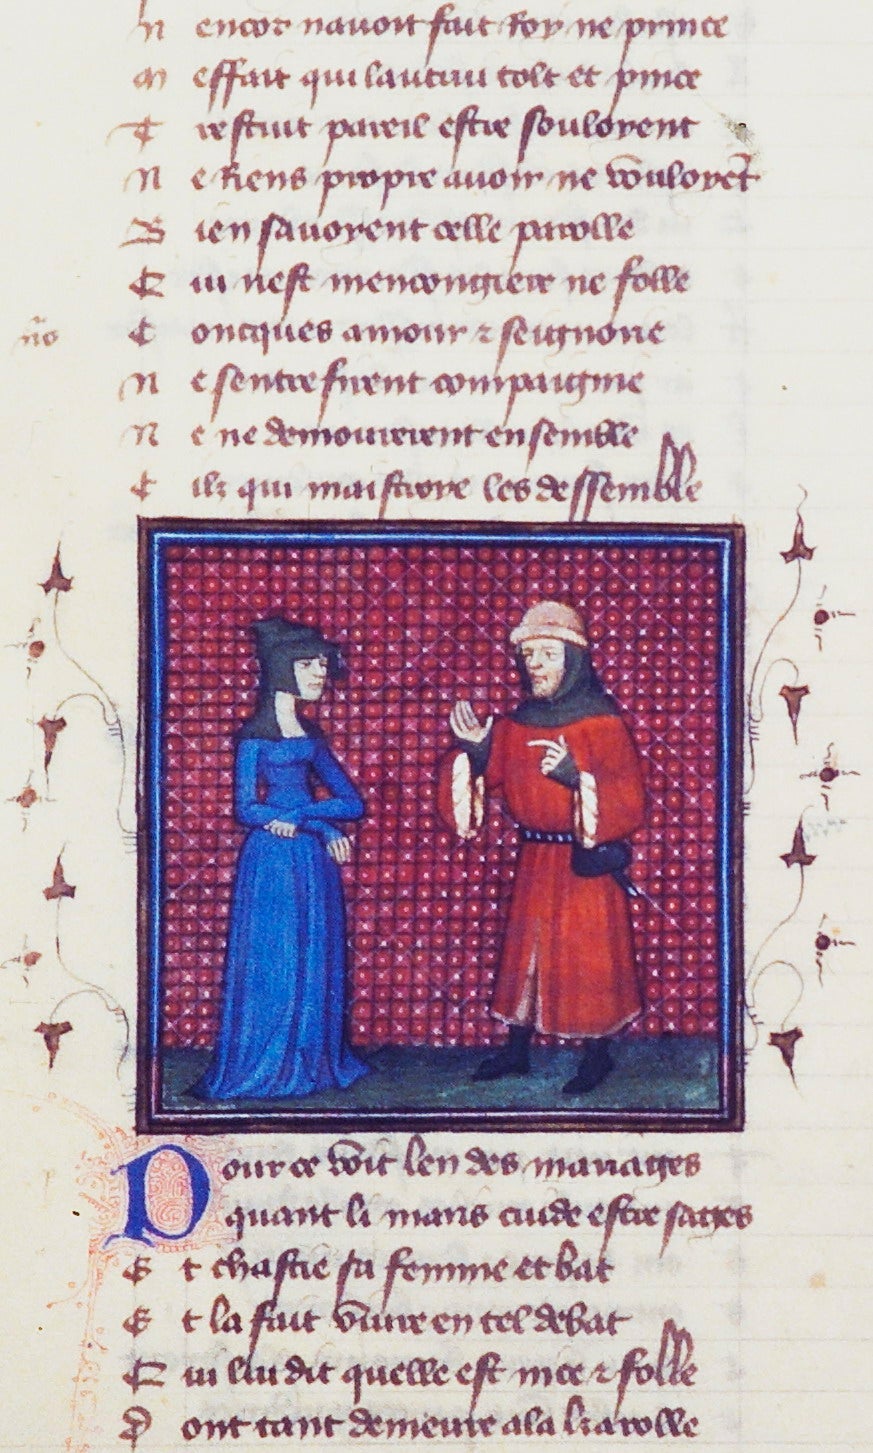 N encor nauoit fait Roy ne prince
M effait qui lautrui tolt et pince
T restuit pareil estre souloyent
N e Riens propre auoir ne vouloyẽt
B ien sauoyent celle parolle
Q ui nest mencongiere ne folle
C oncques amour ⁊ seignorie
ño
N e sentrefirent compaignie
N e ne demourerent ensemble
C ilz qui maistroye les dessemble
Pour ce voit len des mariages
quant li maris cuide estre sages
E t chastie sa femme et bat
E t la fait viure en tel debat
Q ui lui dit quelle est nice ⁊ folle
D ont tant demeure a la karolle